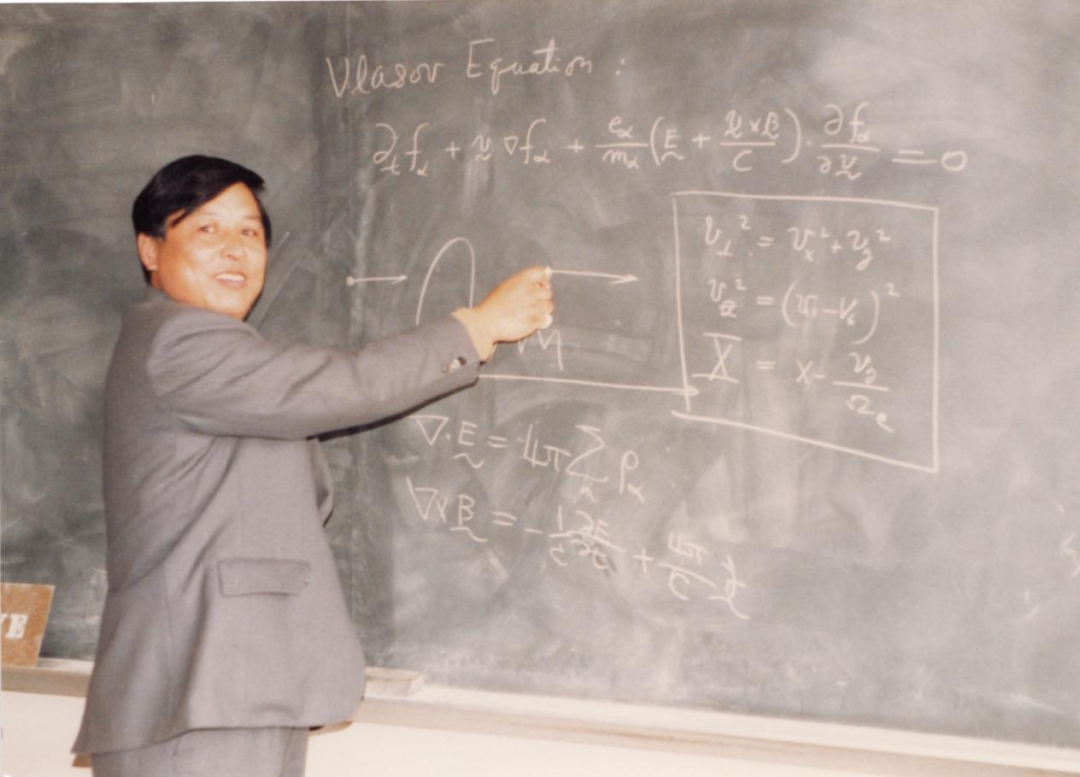 Vlasov Equation :
∂_t f_α + v ∇f_α + e_α/m_α (E + v×B/C) · ∂f_α/∂v = 0
v_⊥² = v_x² + v_z²
= (v_y - V_0)²
X = x - v_z/Ω_e
∇·E = 4π Σ_α ρ_α
∇×B = - 1/c ∂E/∂t + 4π/C j
VE